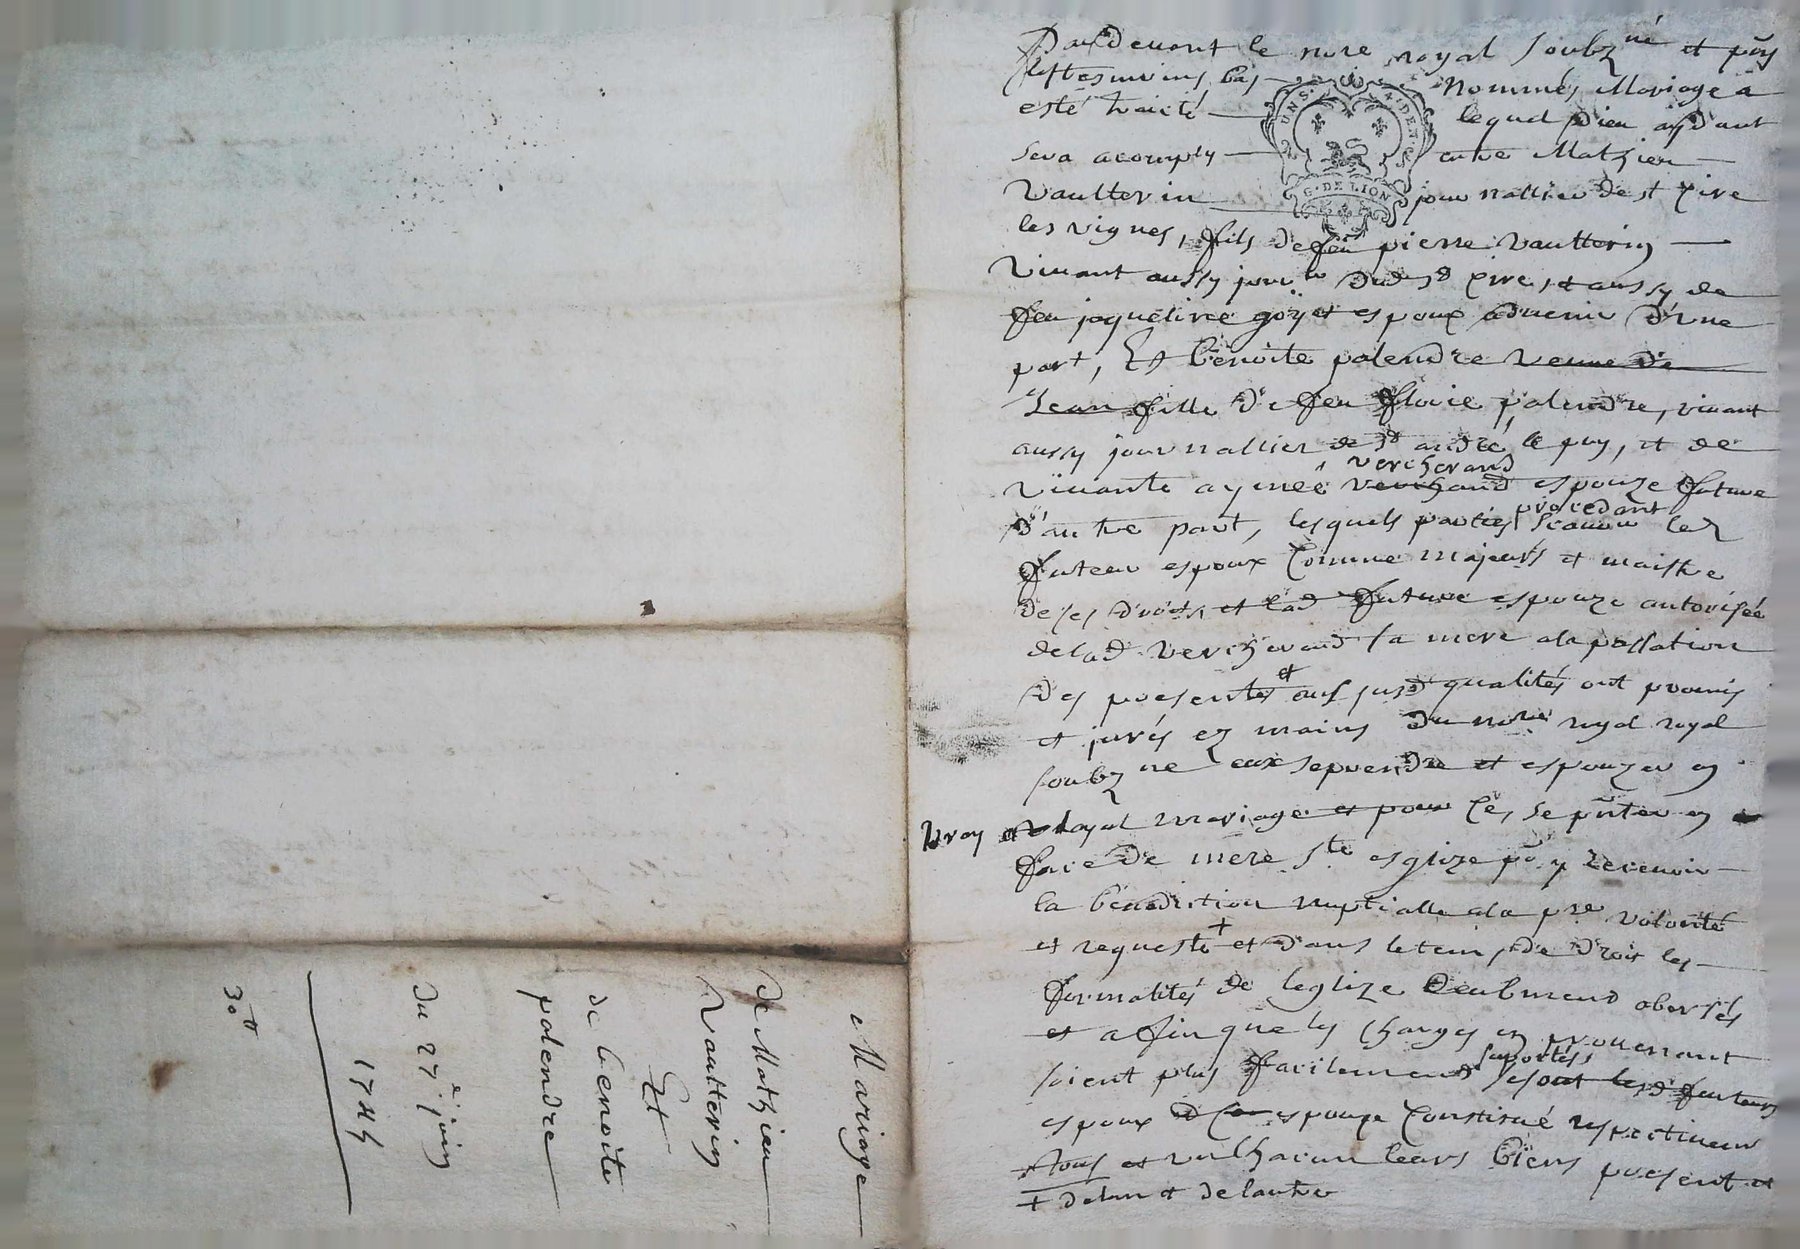 Pardevant le nore royal soubzné et pñs
les tesmoins bas nommés, Mariage a
esté traicté lequel Dieu aydant
sera acomply entre Mathieu
Vaulterin journallier de st Cire
les vignes, fils de feu pierre Vaulterin
vivant aussy jour dud st Cire, et aussy de
feu jaqueline goy et espoux advenir d'une
part, Et benoite palendre veuve de
Jean fille de feu palendre, vivant
aussy journallier de st andré le puy, et de
vercherand
vivante aymée verchand espouze future
procedant
d'autre part, lesquels parties scavoir led
futeur espoux comme majeurs et maistre
de ses droits, et lad future espouze autorisée
de lad vercherand sa mere a la passation
et
des presentes aus susd qualités ont promis
et jurés ez mains du nore royal royal
soubzne eux se prendre et espouzer en
vray et loyal mariage et pour ce, se pñter en
face de mere ste esglize pr y recevoir
la benediction nuptialle a la pre volonté
et requeste + et dans le temps de droit les
formalités de leglize deubment obersés
et afin que les charges en provenant
suportés,
soient plus facilement se sont lesd futeurs
espoux et espouze constitué respectivem
tous et un chacun leurs biens present et
+ de lun et de lautre
Mariage
de Mathieu
Vaulterin
Et
de benoite
palendre
du 27e juin
1745
30
UNS. 4. DEN
G. DE LION